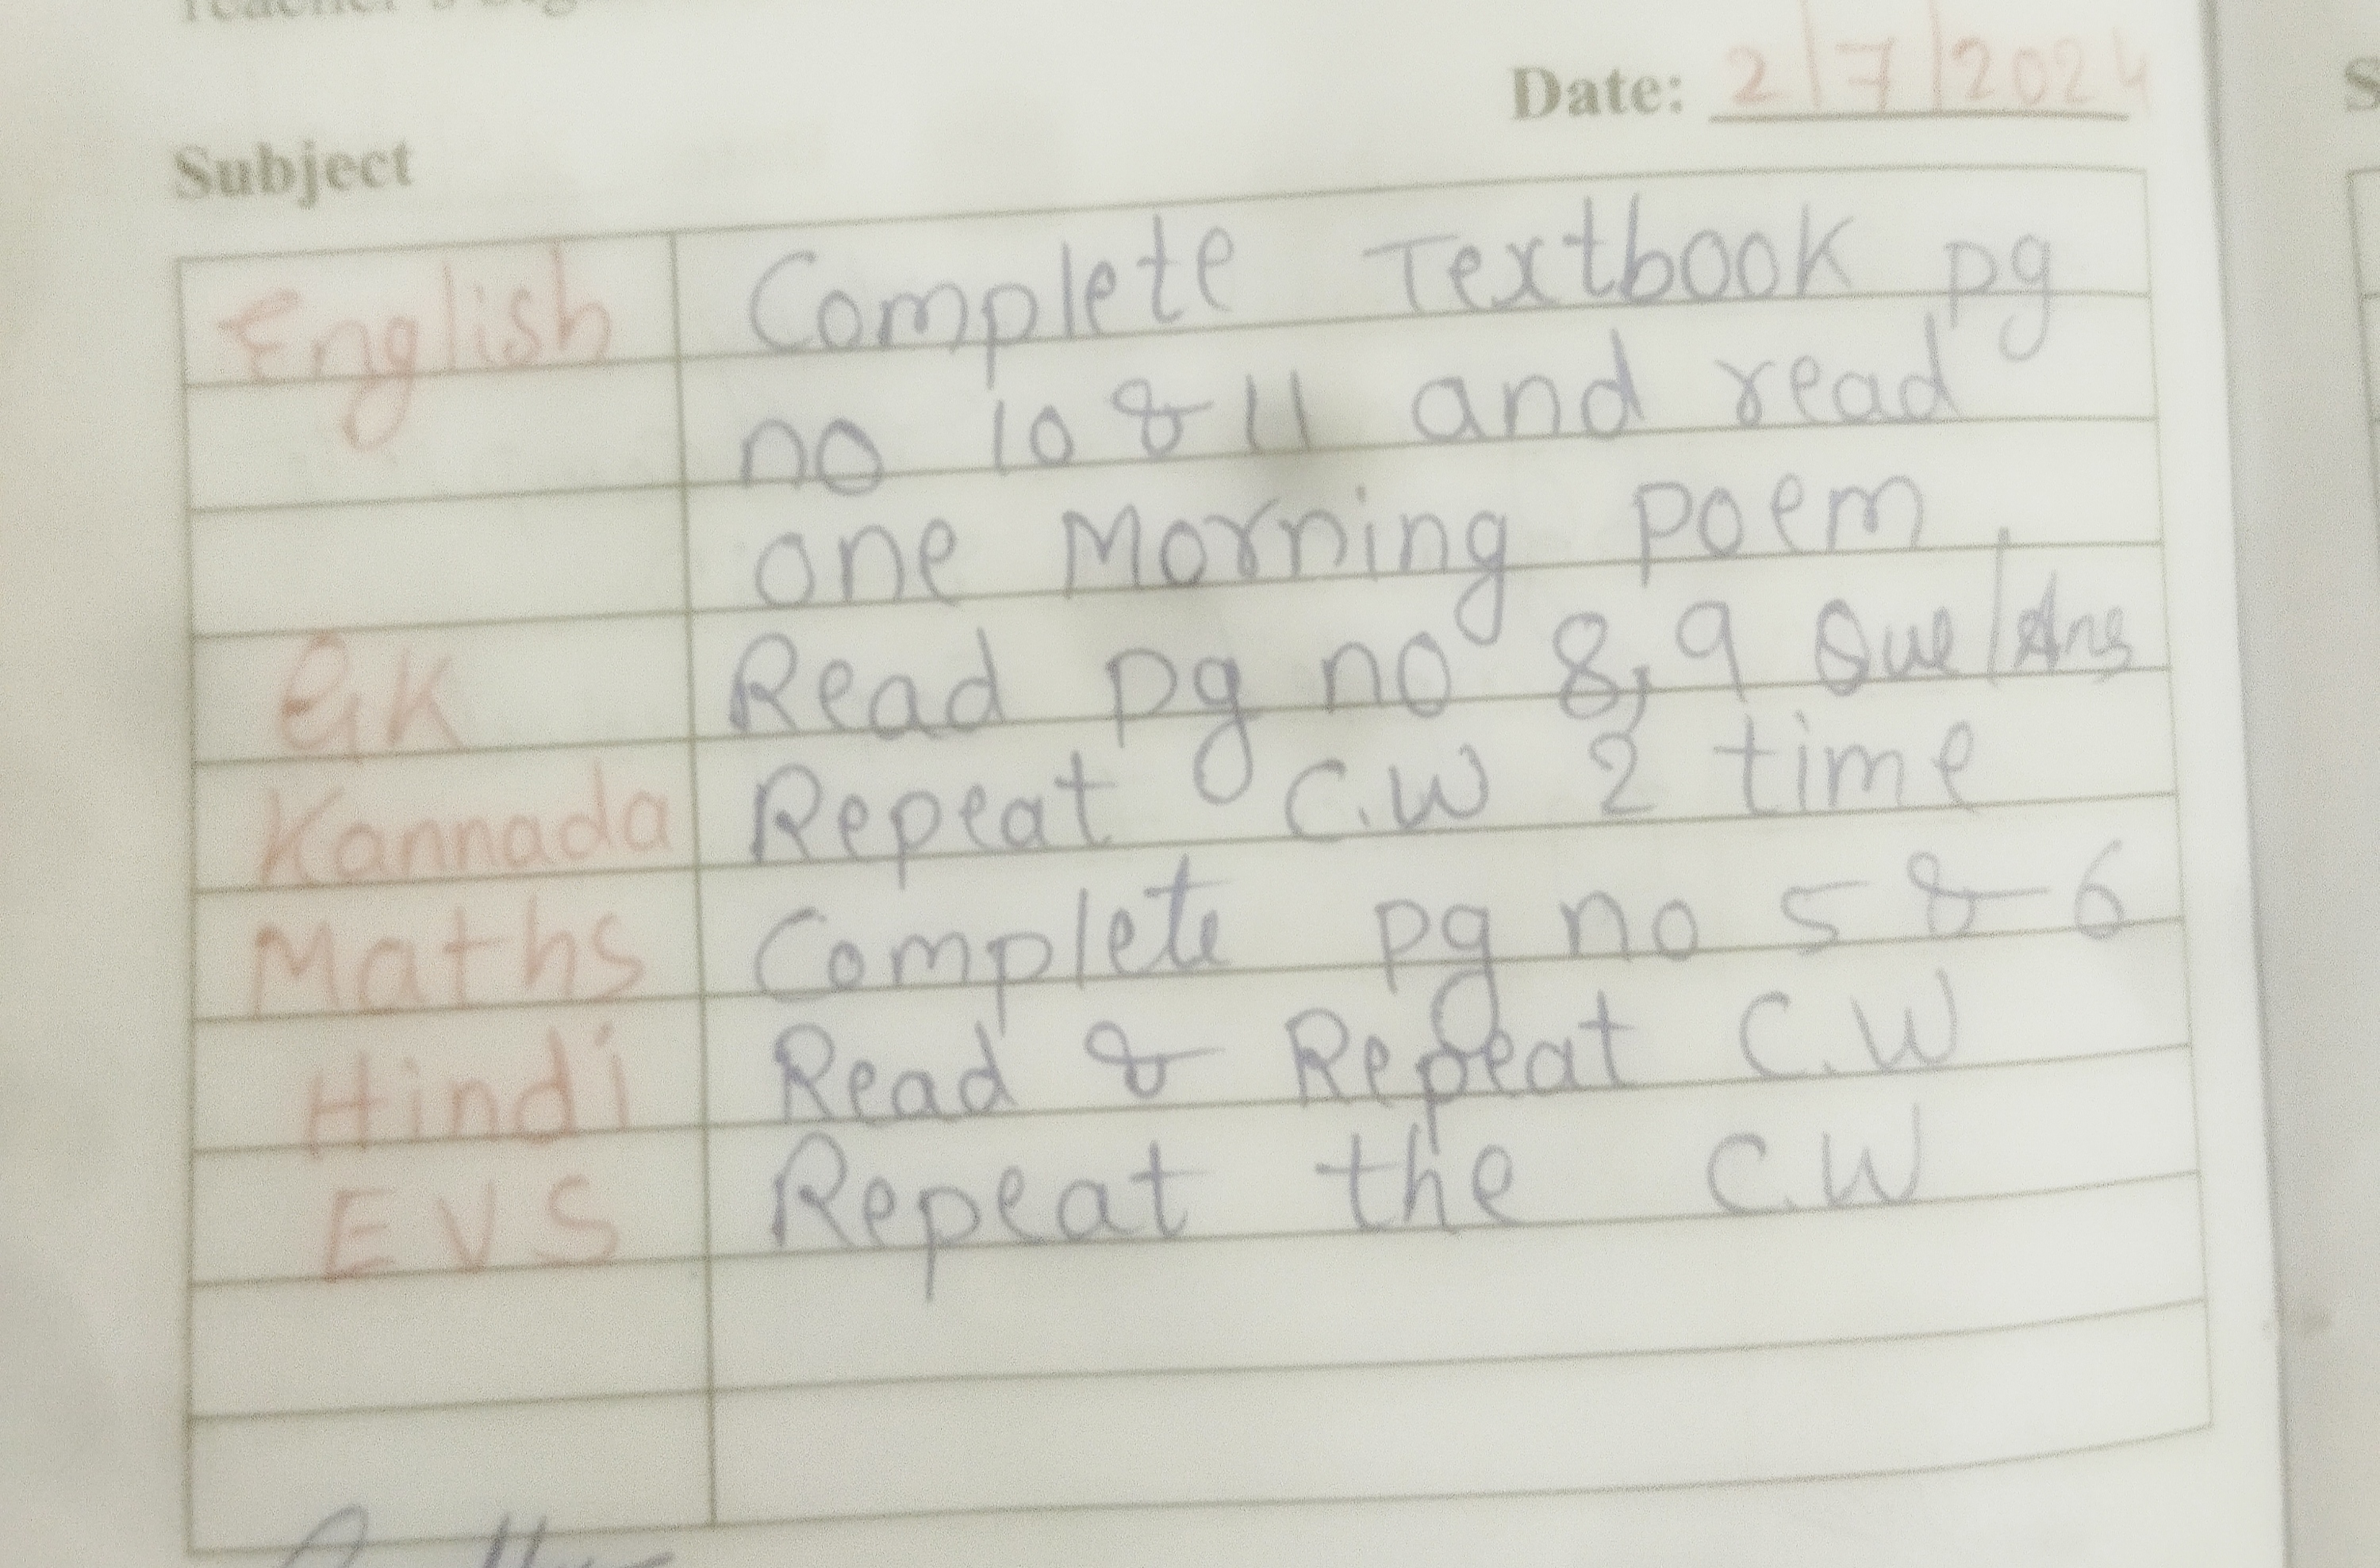 Teacher's
Date: 2/7/2024
Subject
English Complete Textbook pg
no 10 & 11 and read
one Morning poem.
GK Read pg no 8, 9 Que/Ans
Kannada Repeat C.W 2 time
Maths Complete pg no 5 & 6
Hindi Read & Repeat C.W
EVS Repeat the C.W